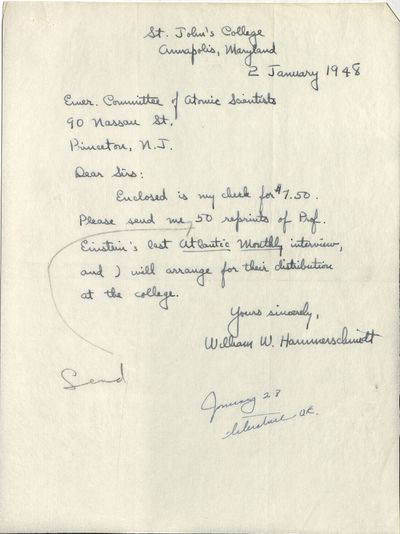 St. John's College
Annapolis, Maryland
2 January 1948
Emer. Committee of Atomic Scientists
90 Nassau St.
Princeton, N.J.
Dear Sirs:
Enclosed is my check for $7.50.
Please send me 50 reprints of Prof.
Einstein's last Atlantic Monthly interview,
and I will arrange for their distribution
at the college.
Yours sincerely,
William W. Hammerschmidt
Send
January 28
literature